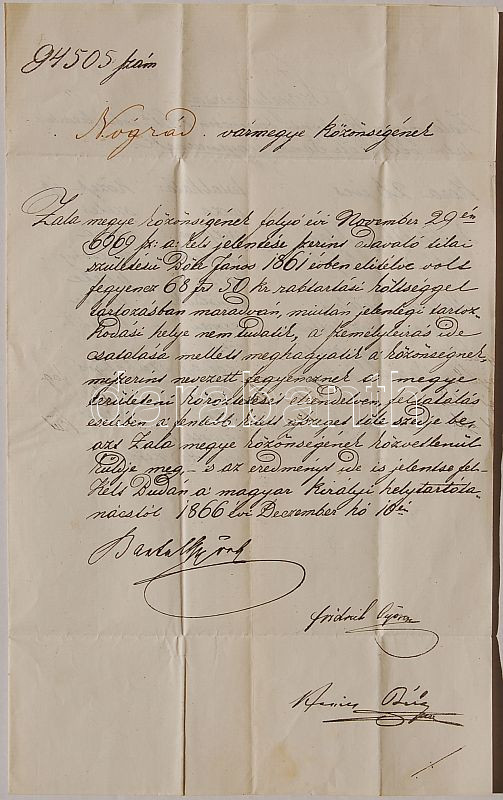 94505 szám
Nógrád vármegye közönségének
Zala megye közönségének folyó évi November 29én
6969 sz: a: kelt jelentése szerint odavaló tilai
születésü Döbr János 1861 évben elitélve volt
fegyencz 68 frt 50 kr rabtartási költséggel
tartozásban maradván, miután jelenlegi tartoz-
kodási helye nem tudatik, a személyleirás ide
csatolása mellett meghagyatik a közönségnek,
miszerint nevezett fegyencznek és megye
területeni köröztetését elrendelvén, feltalálás
esetében a fentebb kitett összeget tőle szedje be,
azt Zala megye közönségének közvetlenül
küldje meg, s az eredményt ide is jelentse fel.
Kelt Budán a magyar királyi helytartóta-
nácstól 1866 évi Deczember hó 10én
Bartal György
darabanth